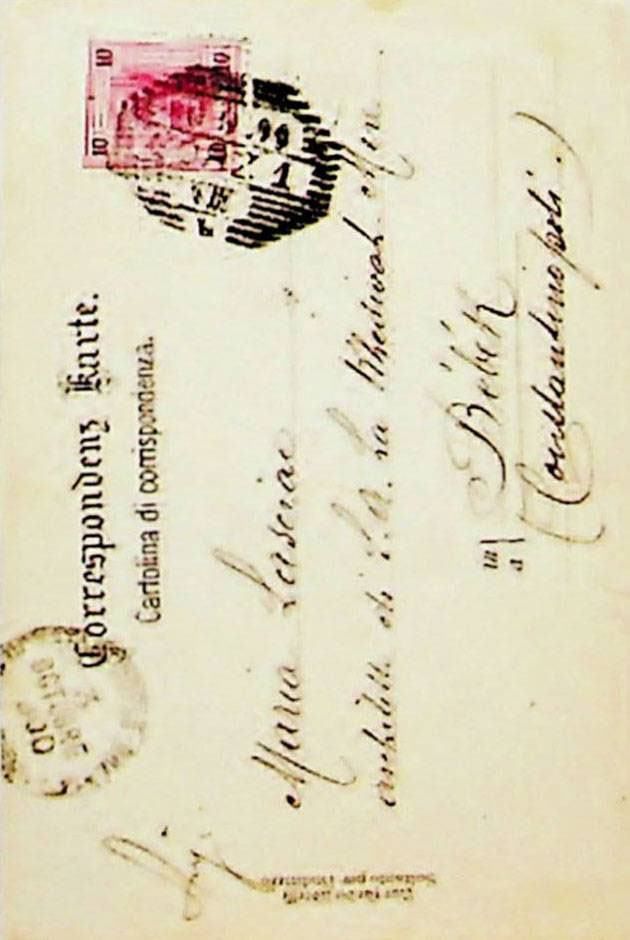 Correspondenz Karte.
Cartolina di corrispondenza.
10 10
10 10
99
1
Sig.
Maria Lasciac
architetto di S. A. La Khediwah Mère
in
a
Bébék
(Constantinopoli)